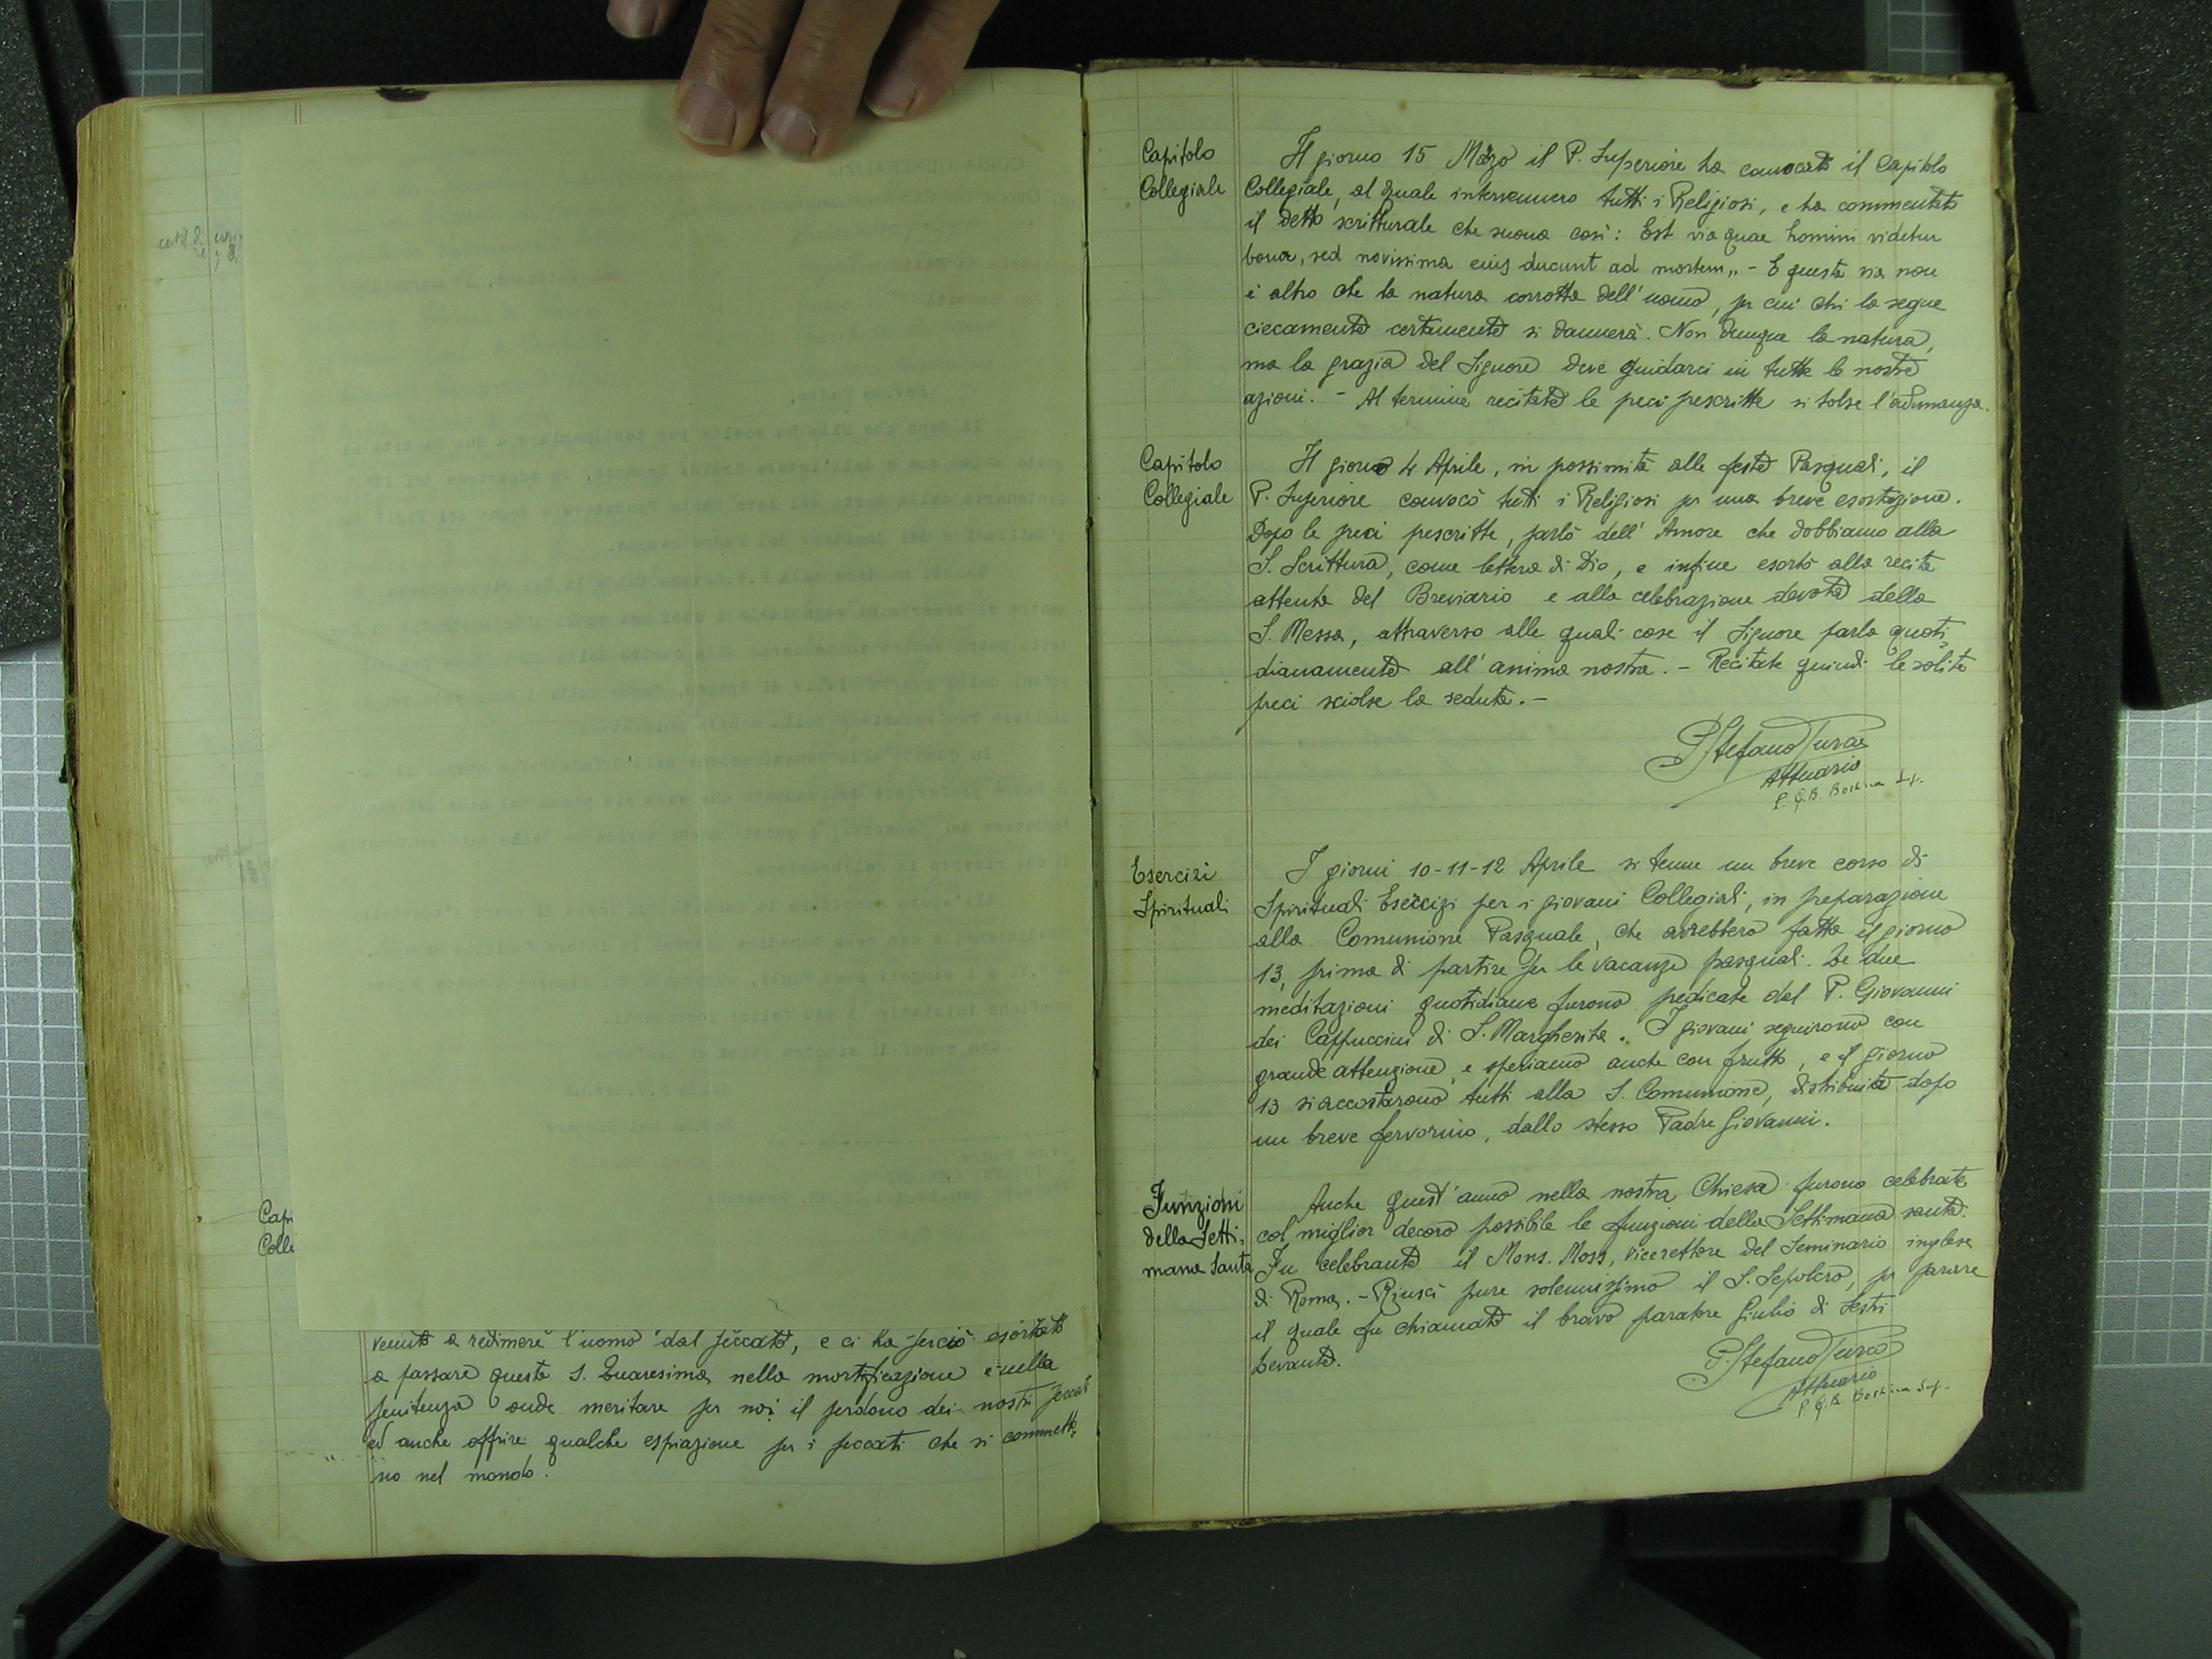 Capi
Colle
venuto a redimere l'uomo dal peccato, e ci ha perciò esortato
a passare questa S. Quaresima nella mortificazione e nella
penitenza onde meritare per noi il perdono dei nostri peccati
ed anche offrire qualche espiazione per i peccati che si commetto:
no nel mondo.
Capitolo
Collegiale
Il giorno 15 Marzo il P. Superiore ha convocato il Capitolo
Collegiale, al quale intervennero tutti i Religiosi, e ha commentato
il detto scritturale che suona così: Est via quae homini videtur
bona, sed novissima eius ducunt ad mortem„ - E questa via non
è altro che la natura corrotta dell'uomo, per cui chi la segue
ciecamente certamente si dannerà. Non dunque la natura,
ma la grazia del Signore deve guidarci in tutte le nostre
azioni. - Al termine recitate le preci prescritte si tolse l'adunanza.
Capitolo
Collegiale
Il giorno 4 Aprile, in prossimità alle feste Pasquali, il
P. Superiore convocò tutti i Religiosi per una breve esortazione.
Dopo le preci prescritte, parlò dell'Amore che dobbiamo alla
S. Scrittura, come lettera di Dio, e infine esortò alla recita
attenta del Breviario e alla celebrazione devota della
S. Messa, attraverso alle quali cose il Signore parla quoti
dianamente all'anima nostra. - Recitate quindi le solite
preci sciolse la seduta. -
P. Stefano Turco
Attuario
P. G.B. Sup.
Esercizi
Spirituali
I giorni 10-11-12 Aprile si tenne un breve corso di
Spirituali Esercizi per i giovani Collegiali, in preparazione
alla Comunione Pasquale, che avrebbero fatta il giorno
13, prima di partire per le vacanze pasquali. Le due
meditazioni quotidiane furono predicate dal P. Giovanni
dei Cappuccini di S. Margherita. I giovani seguirono con
grande attenzione, e speriamo anche con frutto, e il giorno
13 si accostarono tutti alla S. Comunione, distribuita dopo
un breve fervorino, dallo stesso Padre Giovanni.
Funzioni
della Setti:
mana Santa
Anche quest'anno nella nostra Chiesa furono celebrate
col miglior decoro possibile le funzioni della Settimana santa.
Fu celebrante il Mons. Moss, vicerettore del Seminario inglese
di Roma. - Riuscì pure solennissimo il S. Sepolcro, per parare
il quale fu chiamato il bravo paratore Giulio di Sestri
Levante.
P. Stefano Turco
Attuario
P. G.B. Sup.